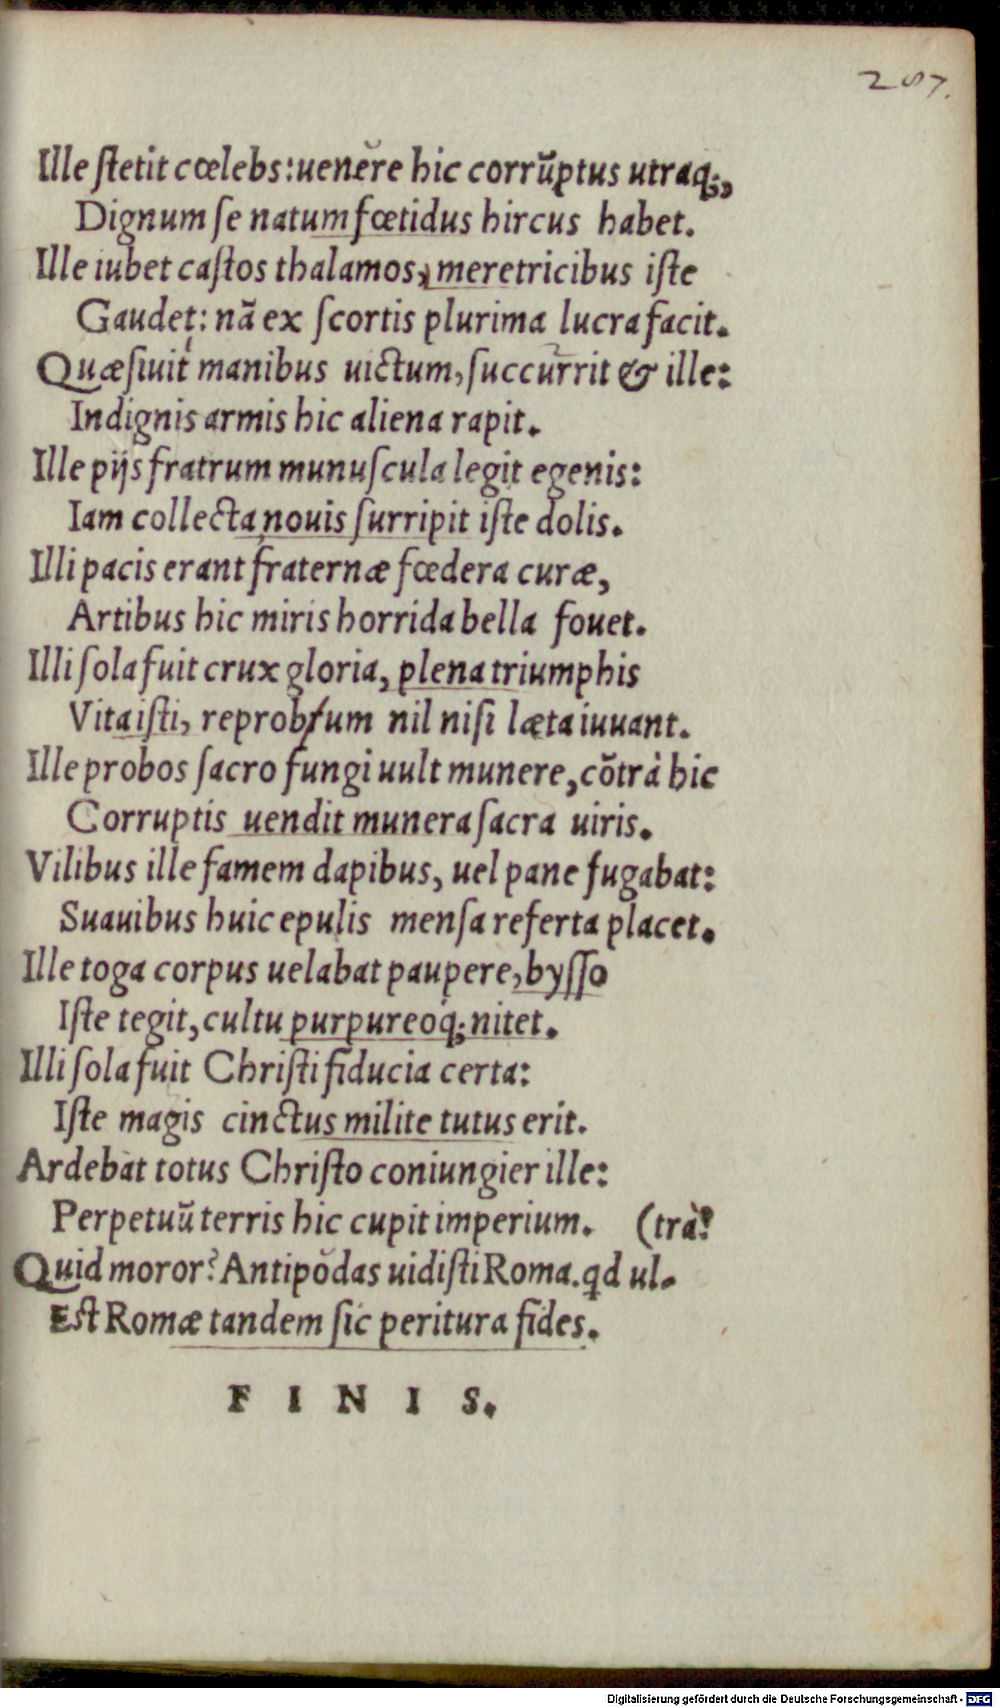 287.
Ille ſtetit cœlebs: uenĕre hic corrŭptus utraq;,
Dignum ſe natum fœtidus hircus habet.
Ille iubet caſtos thalamos, meretricibus iſte
Gaudet: nã ex ſcortis plurima lucra facit.
Quæſiuit manibus uictum, ſuccurrit & ille:
Indignis armis hic aliena rapit.
Ille pijs fratrum munuſcula legit egenis:
Iam collecta nouis ſurripit iſte dolis.
Illi pacis erant fraternæ fœdera curæ,
Artibus hic miris horrida bella fouet.
Illi ſola fuit crux gloria, plena triumphis
Vita iſti, reprobſum nil niſi læta iuuant.
Ille probos ſacro fungi uult munere, cõtrà hic
Corruptis uendit munera ſacra uiris.
Vilibus ille famem dapibus, uel pane fugabat:
Suauibus huic epulis menſa referta placet.
Ille toga corpus uelabat paupere, byſſo
Iſte tegit, cultu purpureoq́; nitet.
Illi ſola fuit Chriſti fiducia certa:
Iſte magis cinctus milite tutus erit.
Ardebat totus Chriſto coniungier ille:
Perpetuũ terris hic cupit imperium. (trà?
Quid moror? Antipŏdas uidiſti Roma. qd ul-
Eſt Romæ tandem ſic peritura fides.
FINIS.
Digitalisierung gefördert durch die Deutsche Forschungsgemeinschaft - DFG